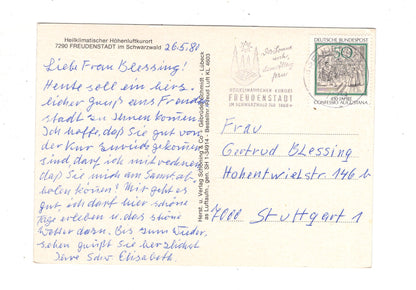 Heilklimatischer Höhenluftkurort
7290 FREUDENSTADT im Schwarzwald
26.5.80
Liebe Frau Blessing!
Heute soll ein herz-
licher Gruß aus Freuden
stadt zu Ihnen kommen.
Ich hoffe, daß Sie gut von
der Kur zurückgekommen
sind, darf ich mit
daß Sie mich am Samst. ab-
holen können! Mir geht es
gut, ich darf hier schöne
Tage erleben u. das schöne
Wetter dazu. Bis zum Wieder-
sehen grüßt Sie herzlichst
Ihre Schw. Elisabeth.
Herst. u. Verlag Schöning & Co + Gebrüder Schmidt - Lübeck
HEILKLIMATISCHER KURORT
FREUDENSTADT
IM SCHWARZWALD
DEUTSCHE BUNDESPOST
50
CONFESSIO AUGUSTANA
Frau
Gertrud Blessing
Hohentwielstr 146 b
7000 Stuttgart 1